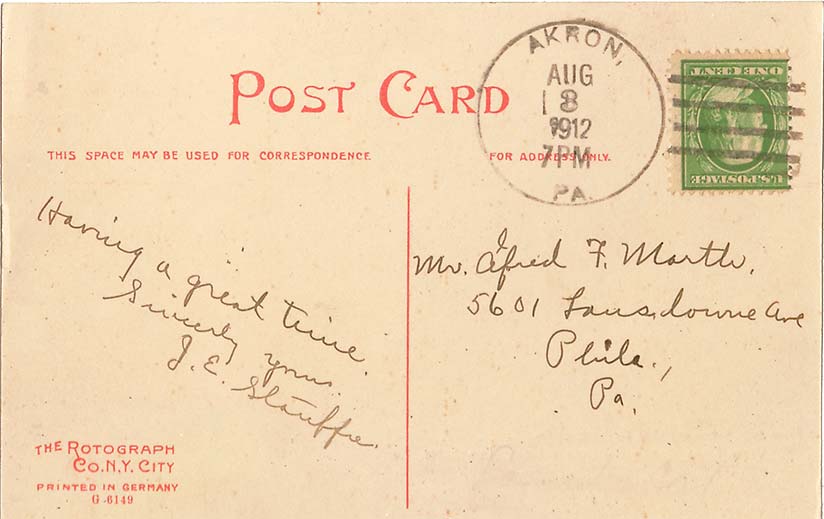 POST CARD
AKRON,
AUG
1912
7PM
PA.
ONE CENT
U.S. POSTAGE
THIS SPACE MAY BE USED FOR CORRESPONDENCE.
FOR ADDRESS ONLY.
Having a great time.
Sincerely yours.
J. E. Stauffer.
Mr. Alfred F.
5601 Lansdowne Ave
Phila.,
Pa.
THE ROTOGRAPH
CO. N.Y. CITY
PRINTED IN GERMANY
G 6149